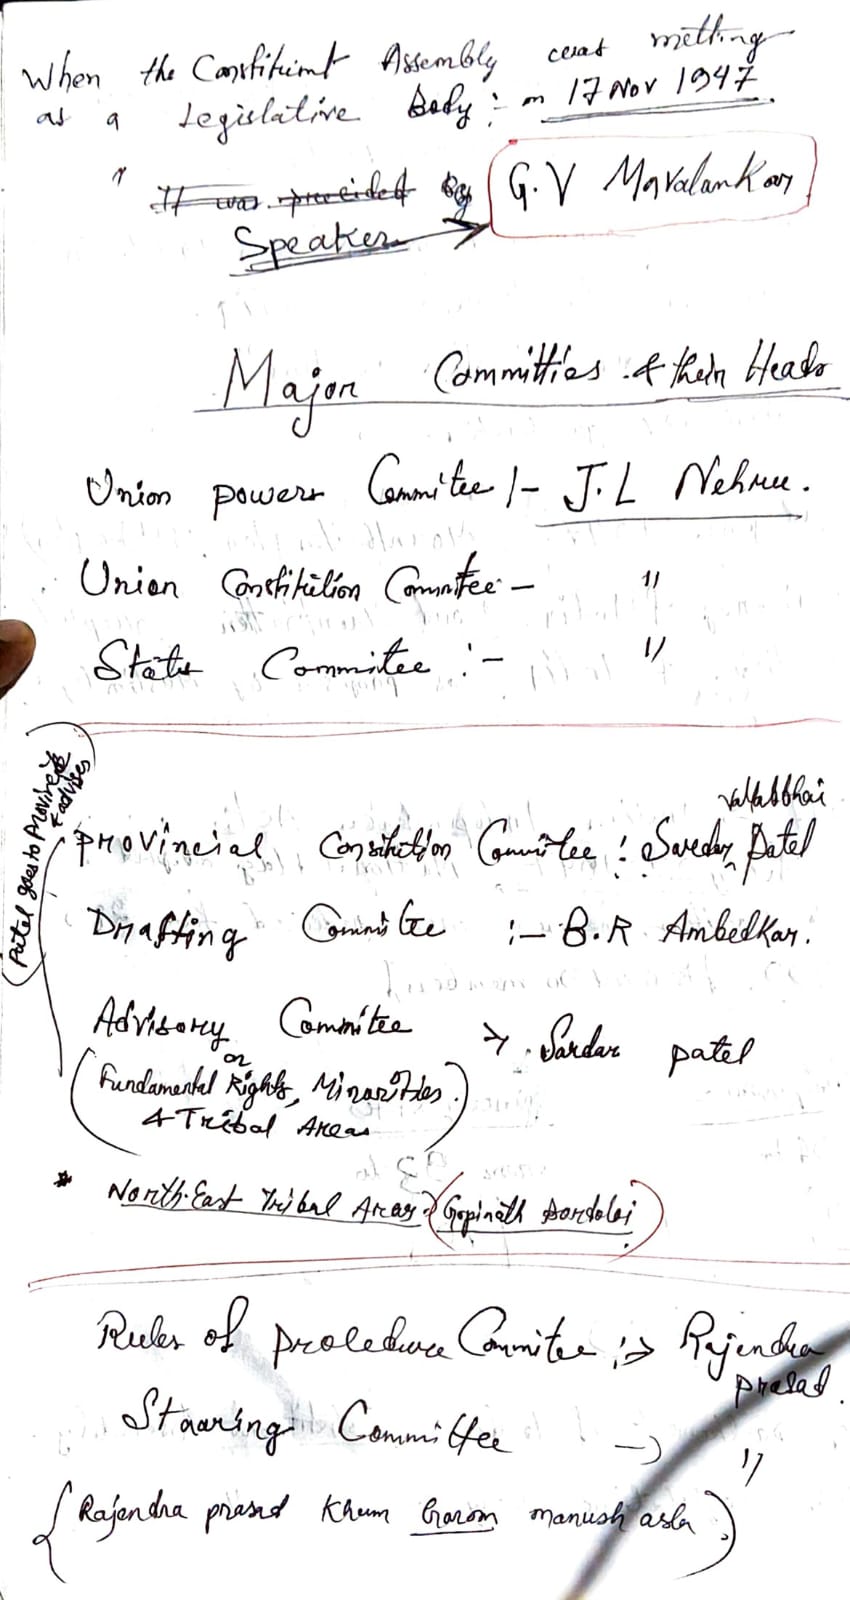 When the Constituent Assembly meeting
as a Legislative Body :- on 17 Nov 1947.
" It was presided by G.V Mavalankar
Speaker
Major Committies & their Heads
Union powers Commitee :- J.L Nehru.
Union Constitution Committee - "
States Commitee :- "
Patel goes to Province
& advises
vallabhai
Provincial Constitution Committee : Sardar Patel
Drafting Committee :- B.R Ambedkar.
Advisory Commitee → Sardar patel
on
(Fundamental Rights, Minorities.
& Tribal Areas)
* North-East Tribal Areas → (Gopinath Bordoloi)
Rules of procedure Commitee :→ Rajendra
prasad.
Staaring Committee → "
{Rajendra prasad Khum Garom manush asla.}